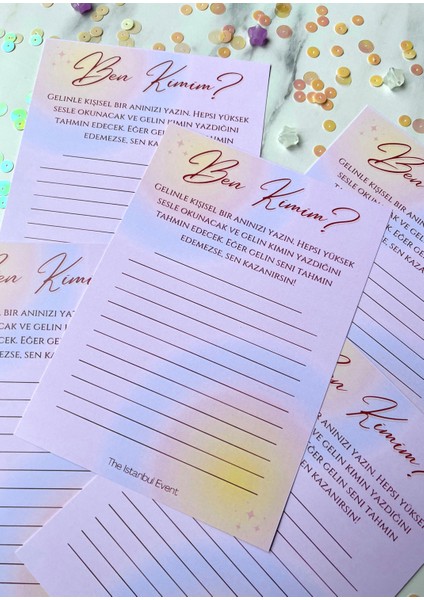 Ben Kimim?
Gelinle kişisel bir anınızı yazın. Hepsi yüksek
sesle okunacak ve gelin kimin yazdığını
tahmin edecek. Eğer gelin
edemezse, sen kazan
Ben Kimim?
Gelinle kişisel bir anınızı yazın. Hepsi yüksek
sesle okunacak ve gelin kimin yazdığını
tahmin edecek. Eğer gelin seni tahmin
edemezse, sen kazanırsın!
The Istanbul Event
Ben
Gelinle kişisel bir
sesle
Kimim?
bir anınızı yazın. Hepsi
acak ve gelin kim
ecek. Eğer gel
mezse, sen ka
Ben Kimim?
anınızı yazın. Hepsi yüksek
ve gelin kimin yazdığını
Eğer gelin seni tahmin
sen kazanırsın!